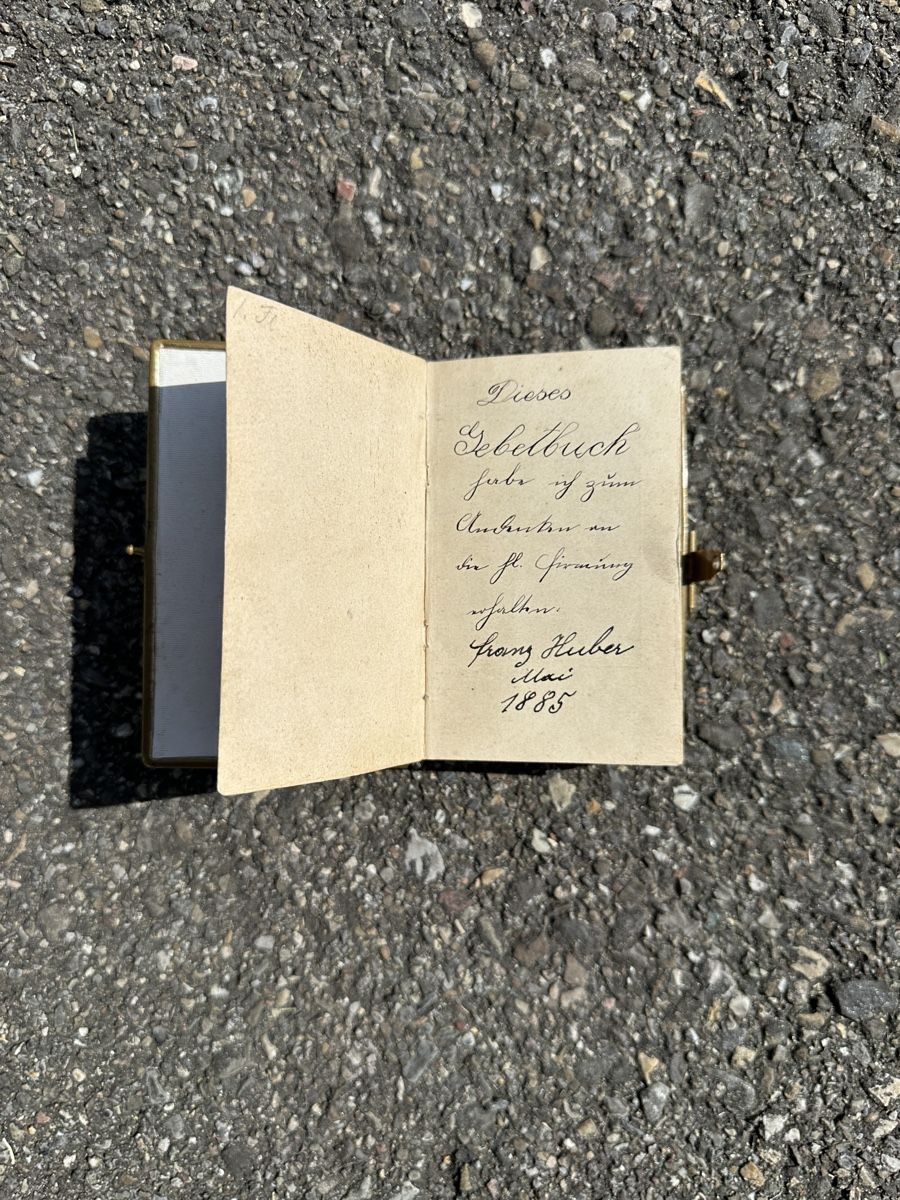 1. Fr
Dieses
Gebetbuch
habe ich zum
Andenken an
die hl. Firmung
erhalten.
Franz Huber
Mai
1885